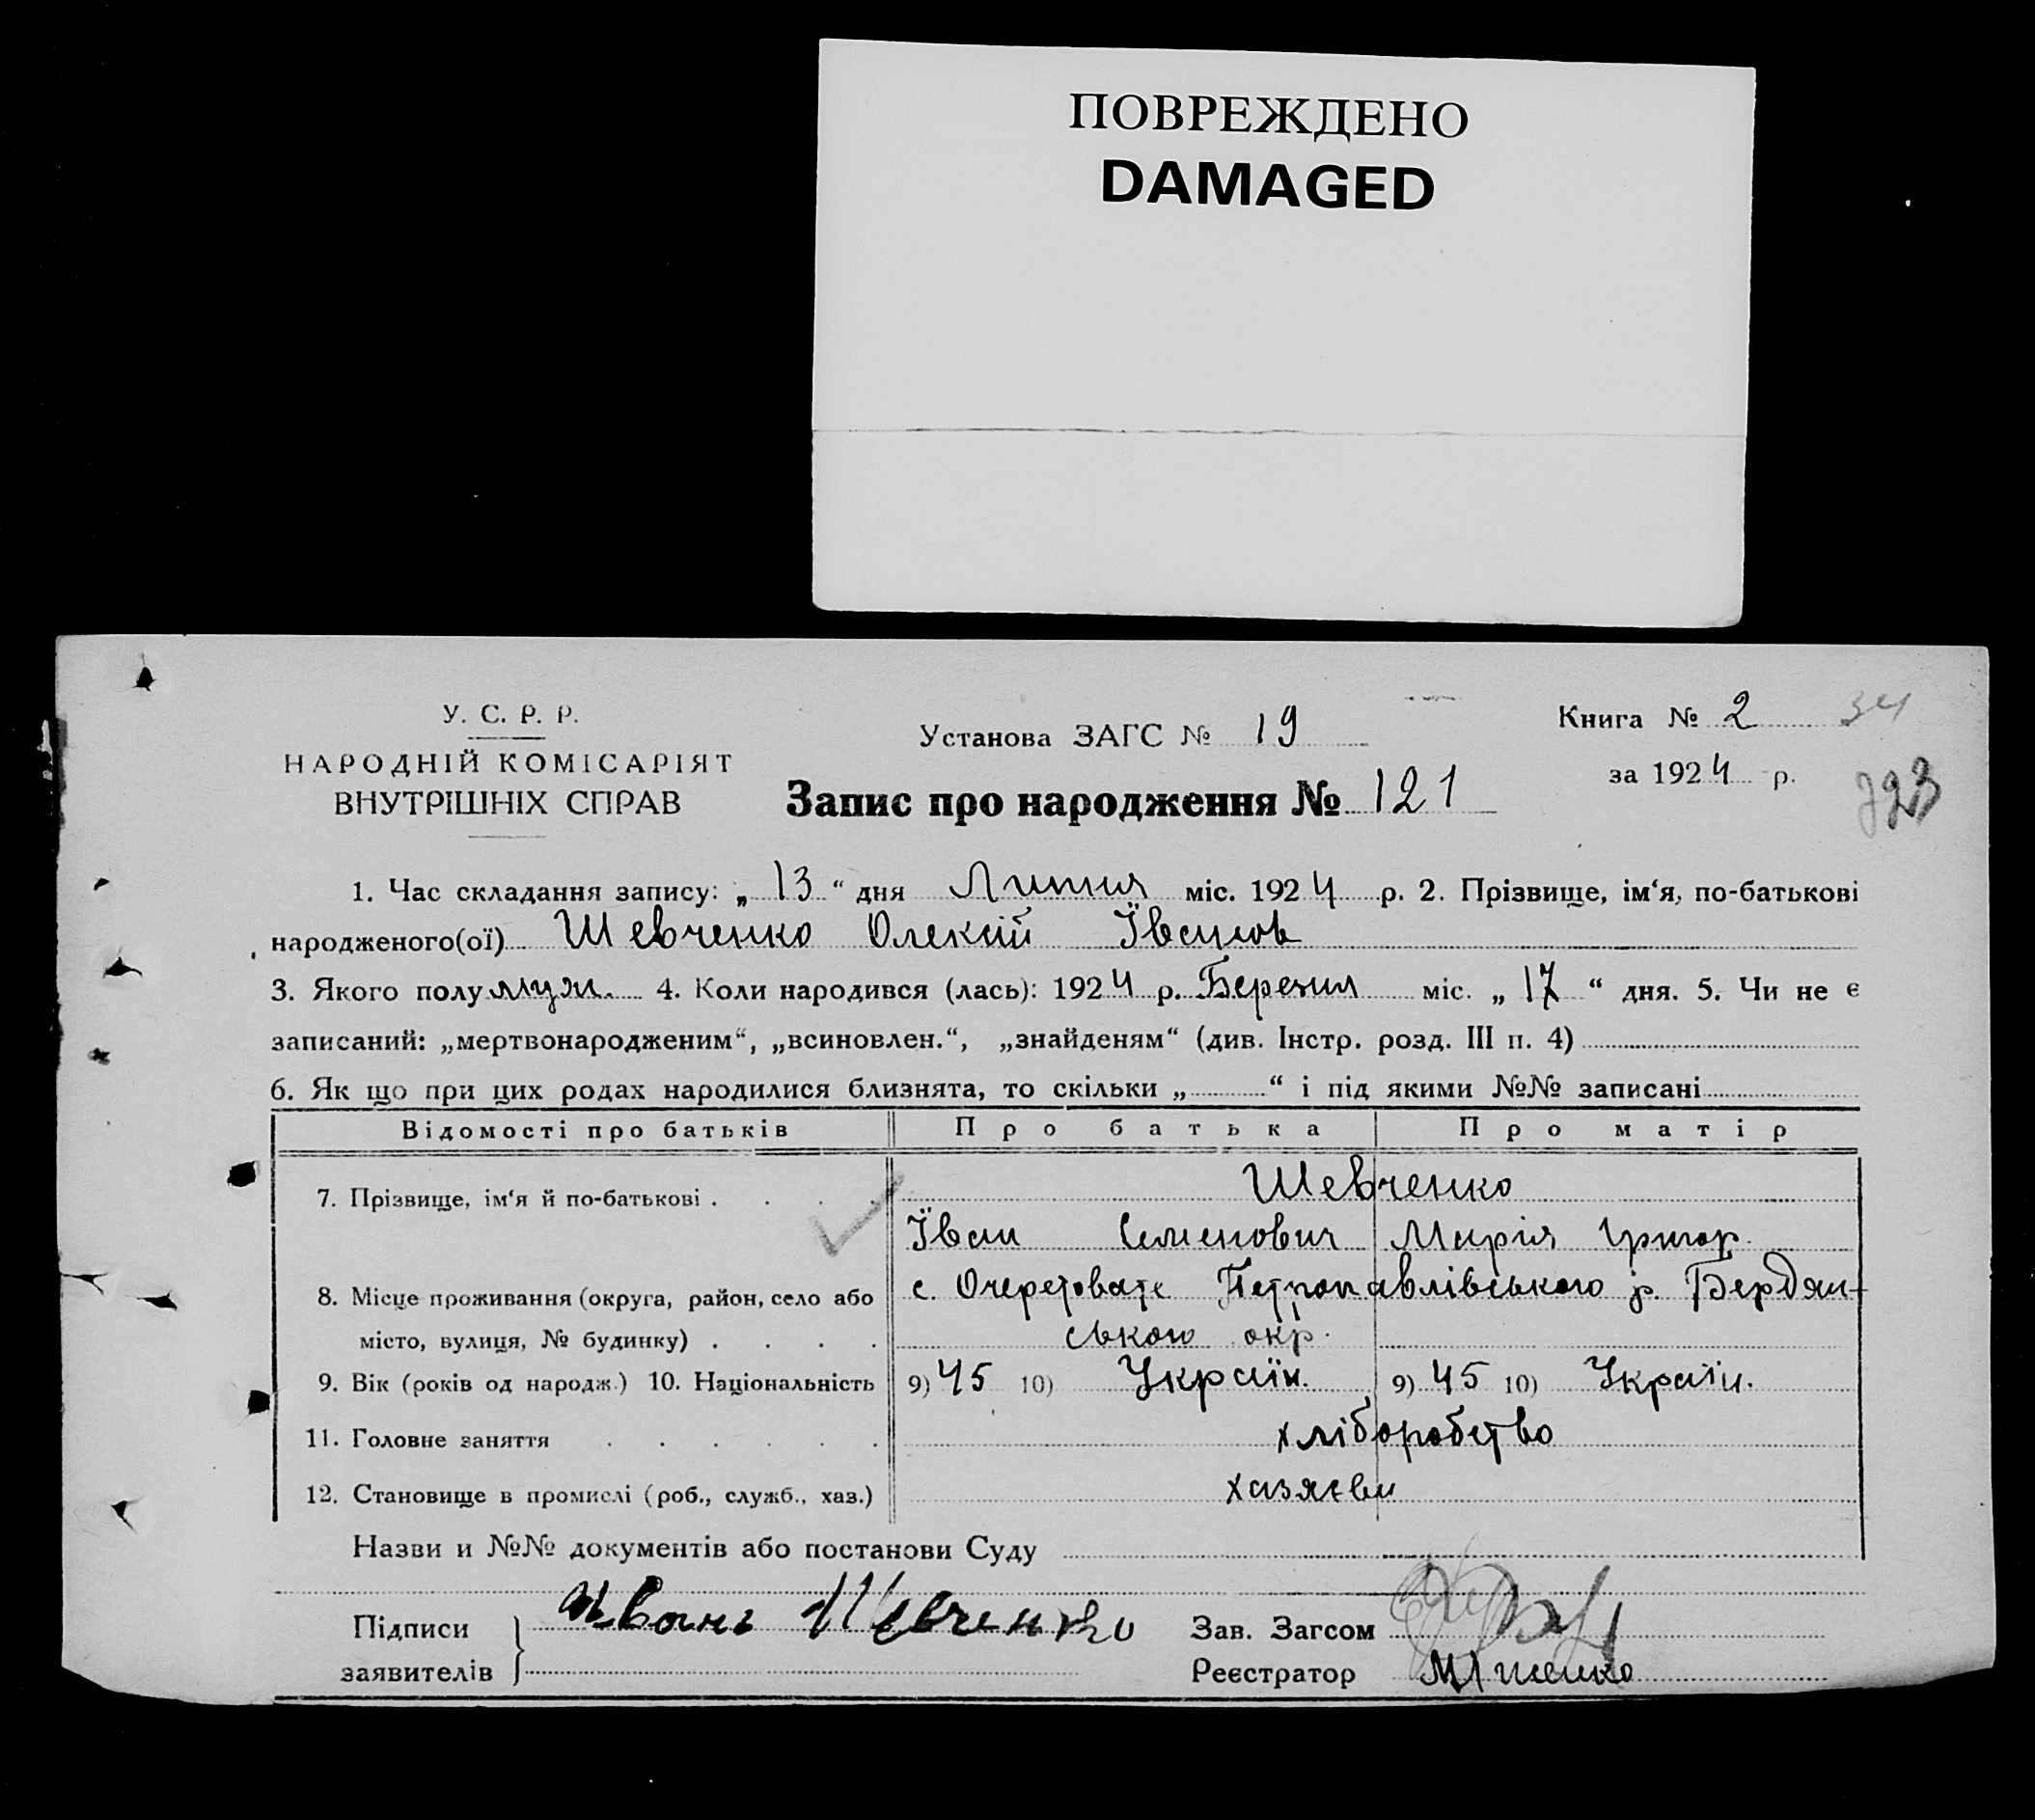 ПОВРЕЖДЕНО
DAMAGED
У. С. Р. Р.
НАРОДНІЙ КОМІСАРІЯТ
ВНУТРІШНІХ СПРАВ
Установа ЗАГС № 19
Запис про народження № 121
Книга № 2 34
за 1924 р.
1. Час складання запису: „ 13 “ дня Липня міс. 1924 р. 2. Прізвище, ім‘я, по-батькові
народженого(ої) Шевченко Олексій Їванов
3. Якого полу муж. 4. Коли народився (лась): 1924 р. Березня міс. „ 17 “ дня. 5. Чи не є
записаний: „мертвонародженим“, „всиновлен.“, „знайденям“ (див. Інстр. розд. III п. 4)
6. Як що при цих родах народилися близнята, то скільки „ “ і під якими №№ записані
Відомості про батьків Про батька Про матір
7. Прізвище, ім‘я й по-батькові . . . . Шевченко
Їван Семенович Марія Григор.
8. Місце проживання (округа, район, село або с. Очеретовате Петропавлівського р. Бердян-
місто, вулиця, № будинку) . . . . ського окр.
9. Вік (років од народж.) 10. Національність 9) 45 10) Україн. 9) 45 10) Україн.
11. Головне заняття . . . . . . хліборобство
12. Становище в промислі (роб., служб., хаз.) хазяєви
Назви и №№ документів або постанови Суду
Підписи Иванъ Шевченко Зав. Загсом
заявителів Реєстратор